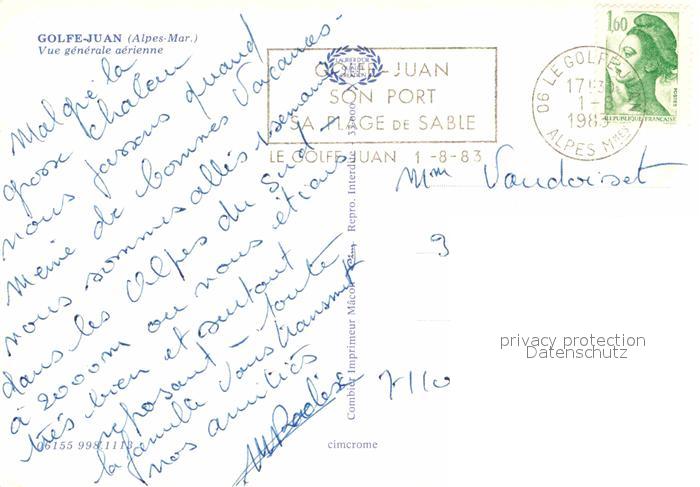 GOLFE-JUAN (Alpes-Mar.)
Vue générale aérienne
Malgré la
grosse chaleur
nous passons quand
même de bonnes vacances -
nous sommes allés 1 semaine
dans les Alpes du Sud
à 2000m où nous étions
très bien et surtout
reposant - toute
la famille vous transmet
nos amitiés
06155 998/1113
cimcrome
Combier Imprimeur Mâcon
Repro. Interdite
GOLFE-JUAN
SON PORT
SA PLAGE DE SABLE
LE GOLFE JUAN 1-8-83
06 LE GOLFE-JUAN
1-8
1983
ALPES Mmes
1,60
POSTES
RÉPUBLIQUE FRANÇAISE
Mme Vaudoiset
9
7110
privacy protection
Datenschutz